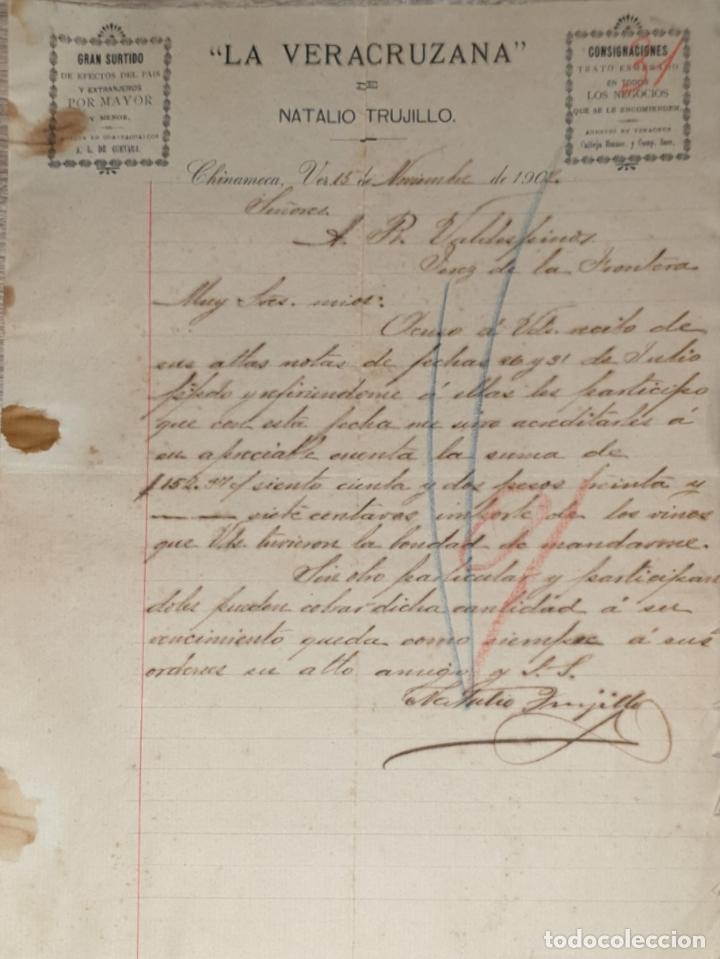 GRAN SURTIDO
DE EFECTOS DEL PAIS
Y EXTRANJEROS
POR MAYOR
Y MENOR.
A. L. DE GUEVARA.
"LA VERACRUZANA"
DE
NATALIO TRUJILLO.
CONSIGNACIONES
TRATO ESMERADO
EN TODOS
LOS NEGOCIOS
QUE SE LE ENCOMIENDEN.
AGENTES EN VERACRUZ
Calleja Hnos. y Comp. Sucs.
31
Chinameca, Ver. 15 de Noviembre de 190
Señores.
A. R. Valdespino
Jerez de la Frontera
Muy Sres. mios:
Acuso á Vds. recibo de
sus attas notas de fechas 26 y 31 de Julio
ppdo y refiriendome á ellas les participo
que con esta fecha me sirvo acreditarles á
su apreciable cuenta la suma de
$152.37 siento cienta y dos pesos treinta y
siete centavos importe de los vinos
que Vds. tuvieron la bondad de mandarme.
Sin otro particular y participan
doles pueden cobrar dicha cantidad á su
vencimiento queda como siempre á sus
ordenes su atto amigo y S. S.
Natalio Trujillo
todocoleccion
todocoleccion.net